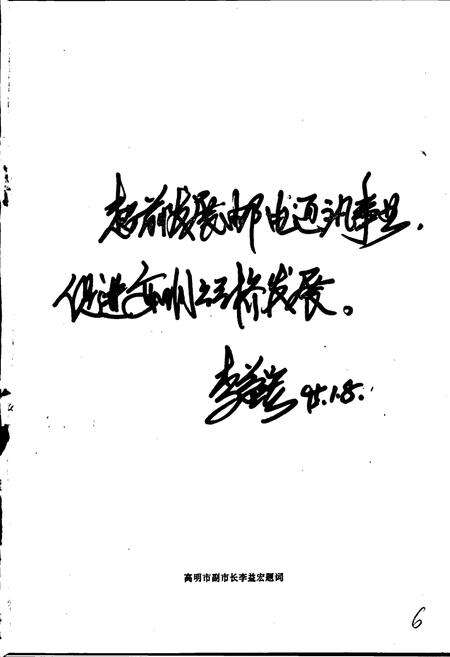 超前发展邮电通讯事业，
促进高明经济发展。
李益宏 95.1.8.
高明市副市长李益宏题词
6